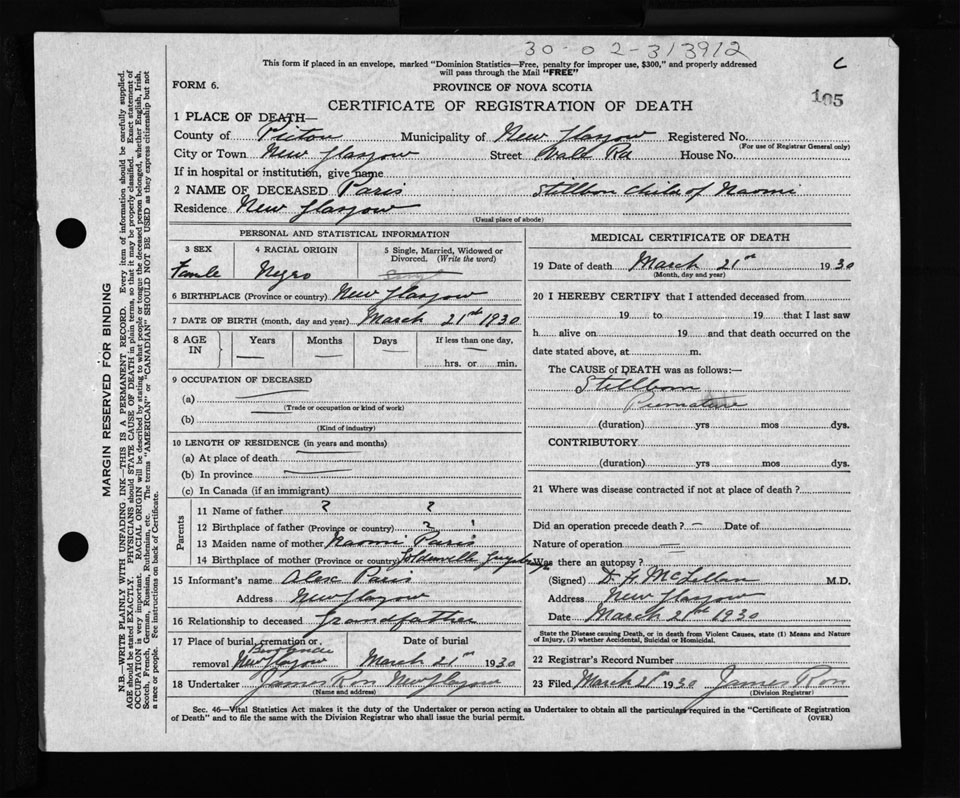 30-02-313912
This form if placed in an envelope, marked "Dominion Statistics—Free, penalty for improper use, $300," and properly addressed
will pass through the Mail "FREE"
C
FORM 6.
PROVINCE OF NOVA SCOTIA
105
CERTIFICATE OF REGISTRATION OF DEATH
1 PLACE OF DEATH—
County of Pictou Municipality of New Glasgow Registered No.
(For use of Registrar General only)
City or Town New Glasgow Street Vale Rd House No.
If in hospital or institution, give name
2 NAME OF DECEASED Paris Stillborn Child of Naomi
Residence New Glasgow
(Usual place of abode)
PERSONAL AND STATISTICAL INFORMATION
3 SEX 4 RACIAL ORIGIN 5 Single, Married, Widowed or
Divorced. (Write the word)
Female Negro
6 BIRTHPLACE (Province or country) New Glasgow
7 DATE OF BIRTH (month, day and year) March 21st 1930
8 AGE IN Years Months Days If less than one day,
hrs. or min.
9 OCCUPATION OF DECEASED
(a)
(Trade or occupation or kind of work)
(b)
(Kind of industry)
10 LENGTH OF RESIDENCE (in years and months)
(a) At place of death
(b) In province
(c) In Canada (if an immigrant)
Parents
11 Name of father ? ?
12 Birthplace of father (Province or country) ?
13 Maiden name of mother Naomi Paris
14 Birthplace of mother (Province or country)
15 Informant's name Alex Paris
Address New Glasgow
16 Relationship to deceased Grandfather
17 Place of burial, cremation or Date of burial
removal New Glasgow March 21st 1930
18 Undertaker James Ron New Glasgow
(Name and address)
MEDICAL CERTIFICATE OF DEATH
19 Date of death March 21st 1930
(Month, day and year)
20 I HEREBY CERTIFY that I attended deceased from
19 to 19 that I last saw
h alive on 19 and that death occurred on the
date stated above, at m.
The CAUSE of DEATH was as follows:—
Stillborn
Premature
(duration) yrs mos dys.
CONTRIBUTORY
(duration) yrs mos dys.
21 Where was disease contracted if not at place of death?
Did an operation precede death? — Date of
Nature of operation —
Was there an autopsy?
(Signed) D. H. McLellan M.D.
Address New Glasgow
Date March 21st 1930
State the Disease causing Death, or in death from Violent Causes, state (1) Means and Nature
of Injury, (2) whether Accidental, Suicidal or Homicidal.
22 Registrar's Record Number
23 Filed March 21st 1930 James Ron
(Division Registrar)
Sec. 46—Vital Statistics Act makes it the duty of the Undertaker or person acting as Undertaker to obtain all the particulars required in the "Certificate of Registration
of Death" and to file the same with the Division Registrar who shall issue the burial permit. (OVER)
MARGIN RESERVED FOR BINDING
N.B.—WRITE PLAINLY WITH UNFADING INK—THIS IS A PERMANENT RECORD. Every item of information should be carefully supplied.
AGE should be stated EXACTLY. PHYSICIANS should STATE CAUSE OF DEATH in plain terms, so that it may be properly classified. Exact statement of
OCCUPATION is very important. RACIAL ORIGIN will be described by stating to what people or tongue the deceased person belonged, whether English, Irish,
Scotch, French, German, Russian, Ruthenian, etc. The terms "AMERICAN" or "CANADIAN" SHOULD NOT BE USED as they express citizenship but not
a race or people. For instructions on back of Certificate.